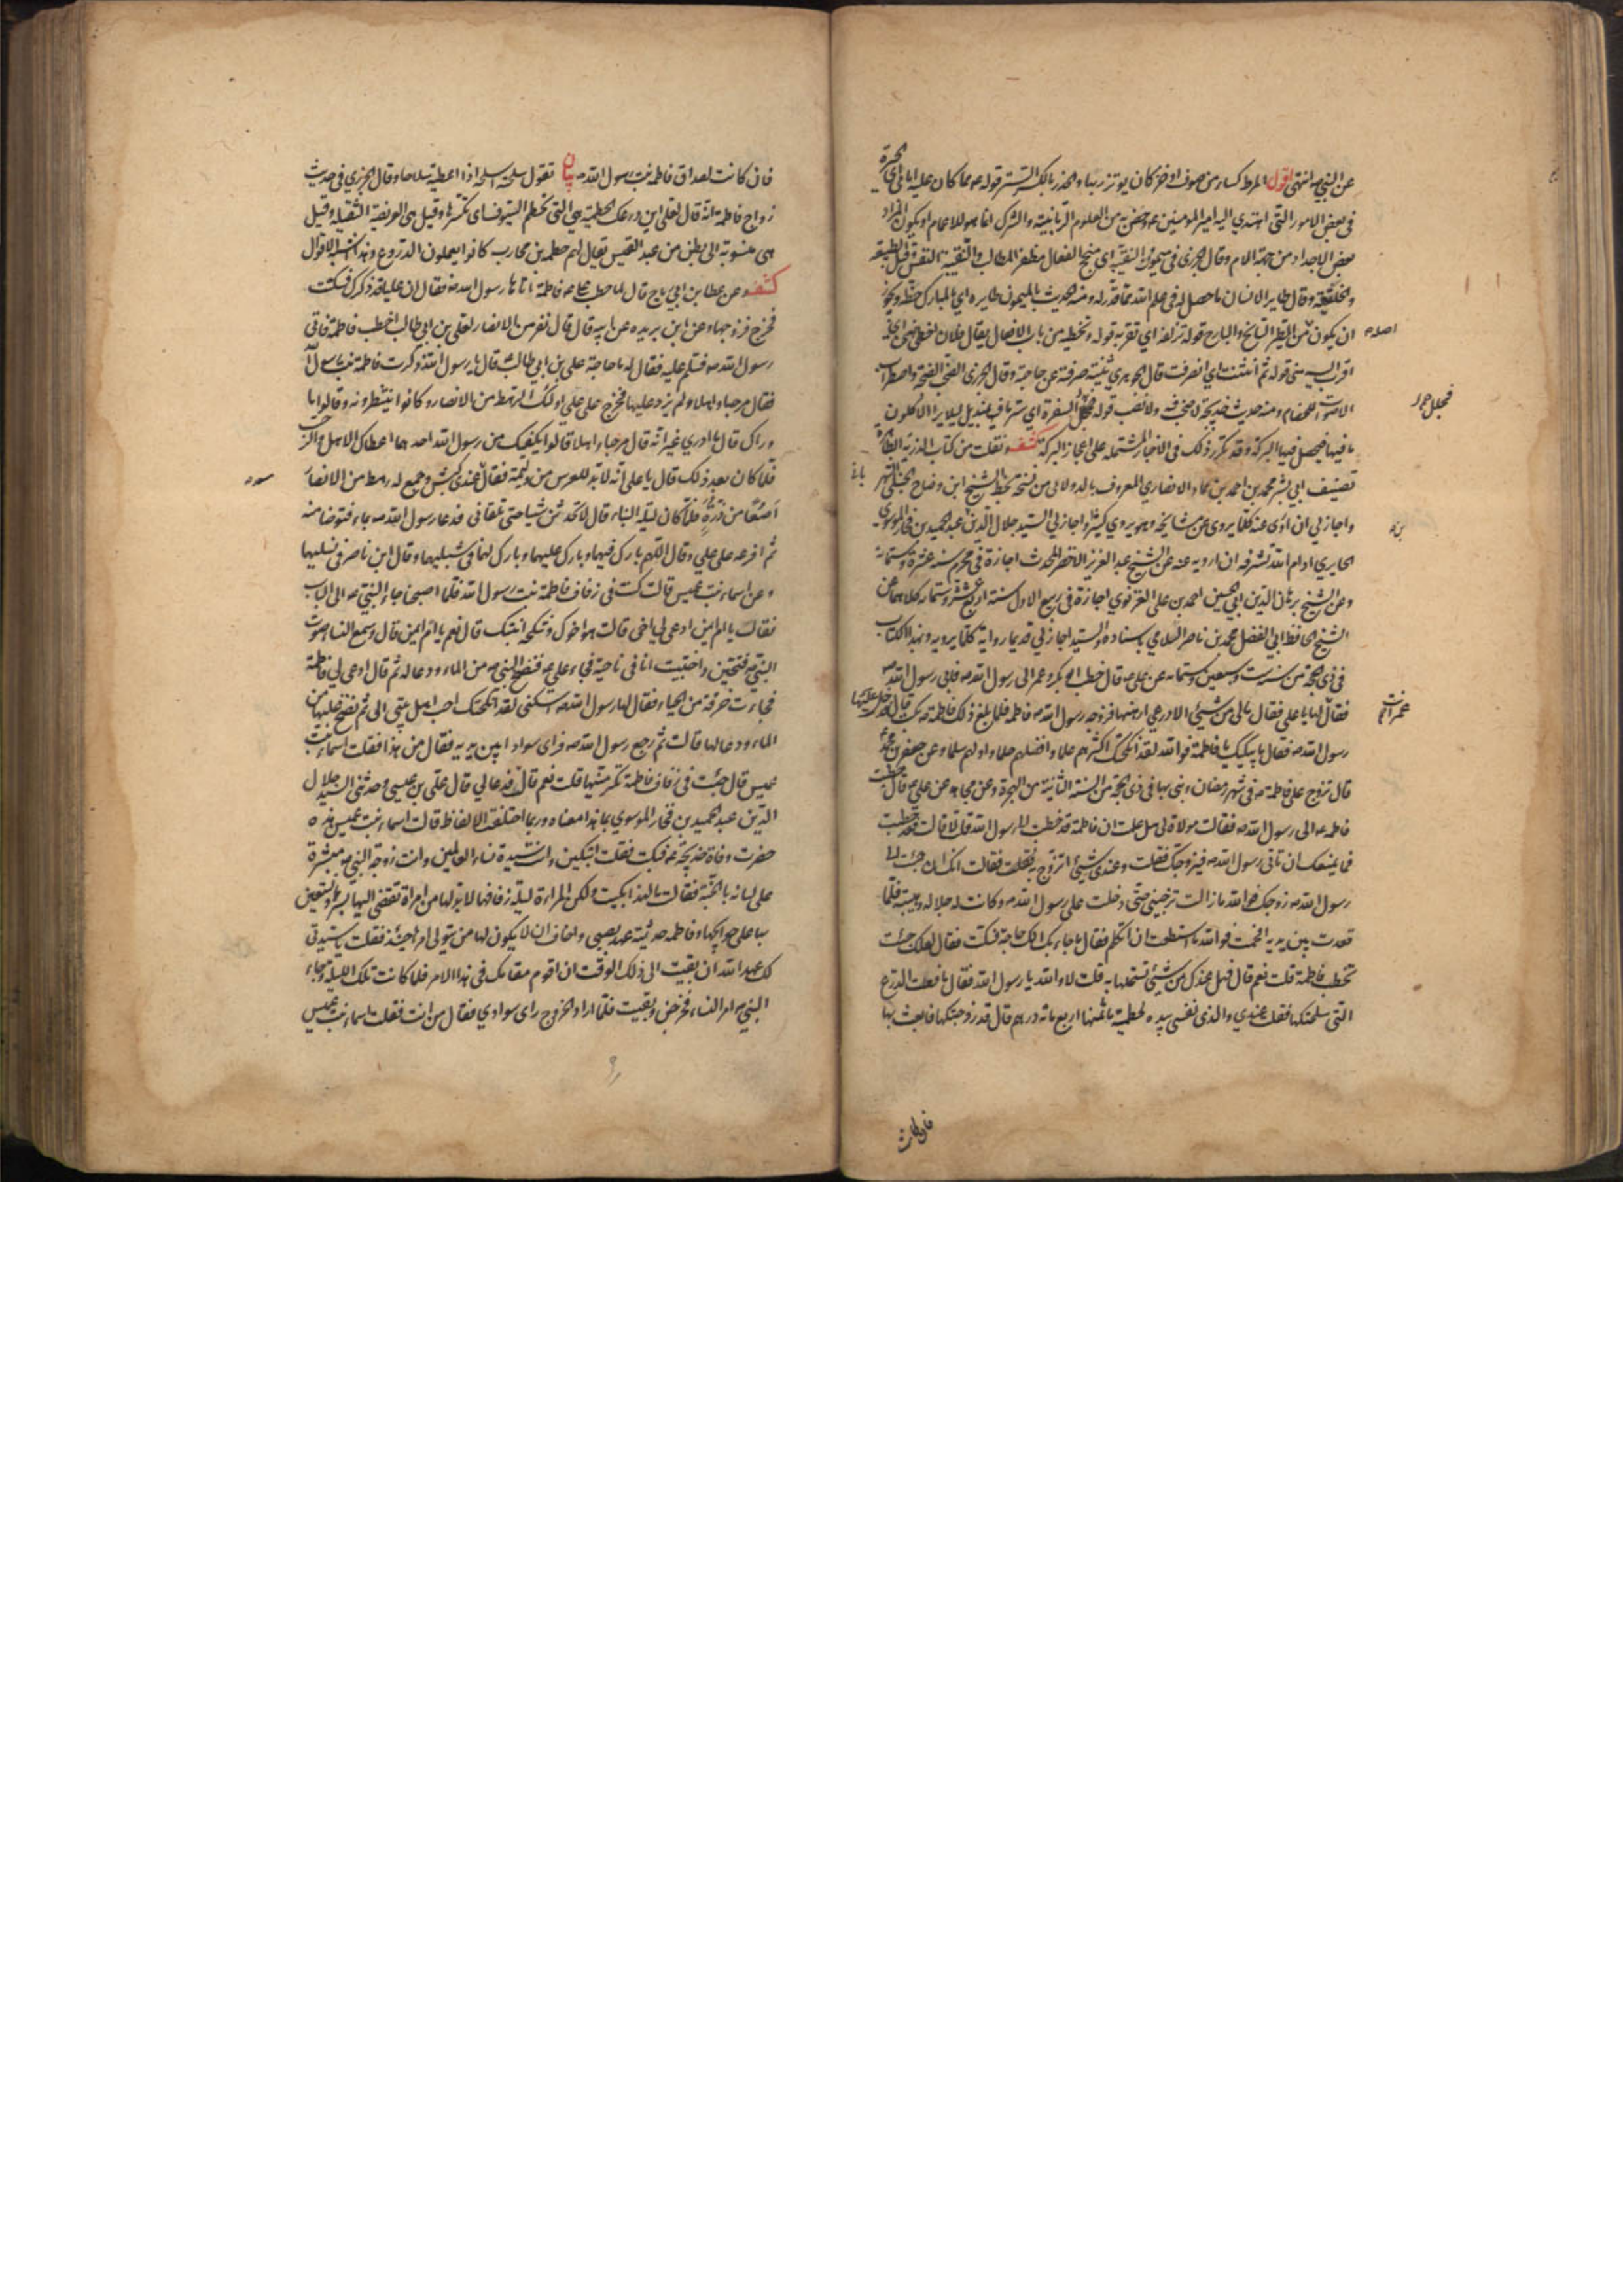 عن النبي ص انتهى اقول المرط كساء من صوف او خز كان يوتزر بها والخدر بالكسر الستر قوله ص مما كان عليه اباي اي الحيرة
في بعض الامور التي اهتدى اليه امير المومنين ع وخص به من العلوم الربانية والشرك انما هو للاعمام او يكون المراد
بعض الاجداد من جهة الام وقال الجزري في ميمون النقيبة اي منجح الفعال مظفر المطالب والنقيبة النفس وقيل الطبيعة
والخليقة وقال طاير الانسان ما حصل له في علم الله مما قدر له ومنه الحديث بالميمون طايره اي بالمبارك حظه ويجوز
ان يكون اصله من الطير السانح والبارح قوله تزلفه اي تقربه قوله وتخطيه من باب الافعال يقال فلان
اقرب اليه مني قوله ثم انثنت اي انصرفت قال الجوهري ثنيته صرفته عن حاجته وقال الجزري الصخب الضجة واضطراب
الاصوات للخصام ومنه حديث خديجة لا صخب فيه ولا نصب قوله فجلل السفرة اي ستر ما فيها بمنديل ليلا يرى الاكلون
ما فيها فيحصل فيها البركة وقد تكرر ذلك في الاخبار المشتملة على اعجاز البركة كشف ونقلت من كتاب الذرية الطاهرة
تصنيف ابي بشر محمد بن احمد بن حماد الانصاري المعروف بالدولابي من نسخة بخط الشيخ ابن وضاح الحنبلي الشهر باني
واجاز لي ان اروي عنه كلما يروي عن مشايخه وهو يروي كثيرا واجاز لي السيد جلال الدين عبد الحميد بن فخار الموسوي
الحايري ادام الله شرفه ان ارويه عنه عن الشيخ عبد العزيز الاخضر المحدث اجازة في محرم سنة عشرة وستمائة
وعن الشيخ برهان الدين ابي الحسين احمد بن علي الغزنوي اجازة في ربيع الاول سنة اربع عشر وستمائة كلاهما عن
الشيخ الحافظ ابي الفضل محمد بن ناصر السلامي باسناده والسيد اجاز لي قديما رواية كلما يرويه وبهذا الكتاب
في ذي الحجة من سنة ست وسبعين وستمائة عن علي ع قال خطب ابو بكر وعمر الى رسول الله ص فابى رسول الله ص
فقال لها يا علي فقال مالي من شيء الا درعي ارهنها فزوجه رسول الله ص فاطمة فلما بلغ ذلك فاطمة ع بكت قال فدخل عليها
رسول الله ص فقال ما يبكيك يا فاطمة فوالله لقد انكحتك اكثرهم علما وافضلهم حلما واولهم سلما وعن جعفر بن محمد
قال تزوج علي فاطمة ع في شهر رمضان وبنى بها في ذي الحجة من السنة الثانية من الهجرة وعن مجاهد عن علي ع قال خطبت
فاطمة ع الى رسول الله ص فقالت مولاة لي هل علمت ان فاطمة قد خطبت الى رسول الله قلت لا قالت فقد خطبت
فما يمنعك ان تاتي رسول الله ص فيزوجك فقلت وعندي شيء اتزوج به فقالت انك ان جئت الى
رسول الله ص زوجك فوالله ما زالت ترجيني حتى دخلت على رسول الله ص وكانت له جلالة وهيبة فلما
قعدت بين يديه افحمت فوالله ما استطعت ان اتكلم فقال ما جاء بك الك حاجة فسكت فقال لعلك جئت
تخطب فاطمة قلت نعم قال فهل عندك من شيء تستحلها به قلت لا والله يا رسول الله فقال ما فعلت الدرع
التي سلحتكها فقلت عندي والذي نفسي بيده لحطمية ما ثمنها اربع مائة درهم قال قد زوجتكها فابعث بها
فان كانت
اصله
فجلل
فان كانت لصداق فاطمة بنت رسول الله ص بيان تقول سلحته اسلحه اذا اعطيته سلاحا وقال الجزري في حديث
زواج فاطمة انه قال لعلي اين درعك الحطمية هي التي تحطم السيوف اي تكسرها وقيل هي العريضة الثقيلة وقيل
هي منسوبة الى بطن من عبد القيس يقال لهم حطمة بن محارب كانوا يعملون الدروع وهذا اشبه الاقوال
كشف وعن عطا بن ابي رباح قال لما خطب علي ع فاطمة اتاها رسول الله ص فقال ان عليا قد ذكرك فسكتت
فخرج فزوجها وعن ابن بريده عن ابيه قال قال نفر من الانصار لعلي بن ابي طالب اخطب فاطمة فاتى
رسول الله ص فسلم عليه فقال له ما حاجة علي بن ابي طالب قال يا رسول الله ذكرت فاطمة بنت رسول الله
فقال مرحبا واهلا ولم يزد عليها فخرج علي على اولئك الرهط من الانصار وكانوا ينتظرونه قالوا ما
وراك قال ما ادري غير انه قال مرحبا واهلا قالوا يكفيك من رسول الله احدهما اعطاك الاهل والرحب
فلما كان بعد ذلك قال يا علي انه لا بد للعرس من وليمة فقال سعد عندي كبش وجمع له رهط من الانصار
اصوعا من ذرة فلما كان ليلة البناء قال لا تحدثن شيئا حتى تلقاني فدعا رسول الله ص بماء فتوضا منه
ثم افرغه على علي وقال اللهم بارك فيهما وبارك عليهما وبارك لهما في شبليهما وقال ابن ناصر في نسليهما
وعن اسماء بنت عميس قالت كنت في زفاف فاطمة بنت رسول الله فلما اصبحنا جاء النبي ص الى الباب
فقال يا ام ايمن ادعي لي اخي قالت هو اخوك وتنكحه ابنتك قال نعم يا ام ايمن قال وسمع النساء صوت
النبي ص فتنحين واختبيت انا في ناحية فجاء علي ع فنضح النبي ص من الماء ودعا له ثم قال ادعي لي فاطمة
فجاءت خرقة من الحياء فقال لها رسول الله ص اسكني لقد انكحتك احب اهل بيتي الي ثم نضح عليها من
الماء ودعا لها قالت ثم رجع رسول الله ص فراى سوادا بين يديه فقال من هذا فقلت اسماء بنت
عميس قال جئت في زفاف فاطمة تكرمينها قلت نعم قالت فدعا لي قال علي بن عيسى وحدثني السيد جلال
الدين عبد الحميد بن فخار الموسوي بما هذا معناه وربما اختلفت الالفاظ قالت اسماء بنت عميس هذه
حضرت وفاة خديجة ع فبكت فقلت اتبكين وانت سيدة نساء العالمين وانت زوجة النبي ص مبشرة
على لسانه بالجنة فقالت ما لهذا بكيت ولكن المراة ليلة زفافها لا بد لها من امراة تفضي اليها بسرها وتستعين
بها على حوايجها وفاطمة حديثة عهد بصبى واخاف ان لا يكون لها من يتولى امرها حينئذ فقلت يا سيدتي
لك عهد الله ان بقيت الى ذلك الوقت ان اقوم مقامك في هذا الامر فلما كانت تلك الليلة وجاء
النبي ص امر النساء فخرجن وبقيت فلما اراد الخروج راى سوادي فقال من انت فقلت اسماء بنت عميس